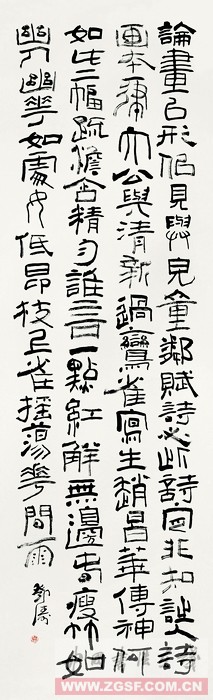 論畫以形似見與兒童鄰賦詩必此詩定非知詩人詩
画本律天公與清新邊鸞雀寫生趙昌華傳神何
如此二幅疏澹含精勻誰言一點紅解無邊春瘦竹如
幽人幽華如處女低昂枝上雀搖蕩華間雨
WWW.ZGSF.COM.CN